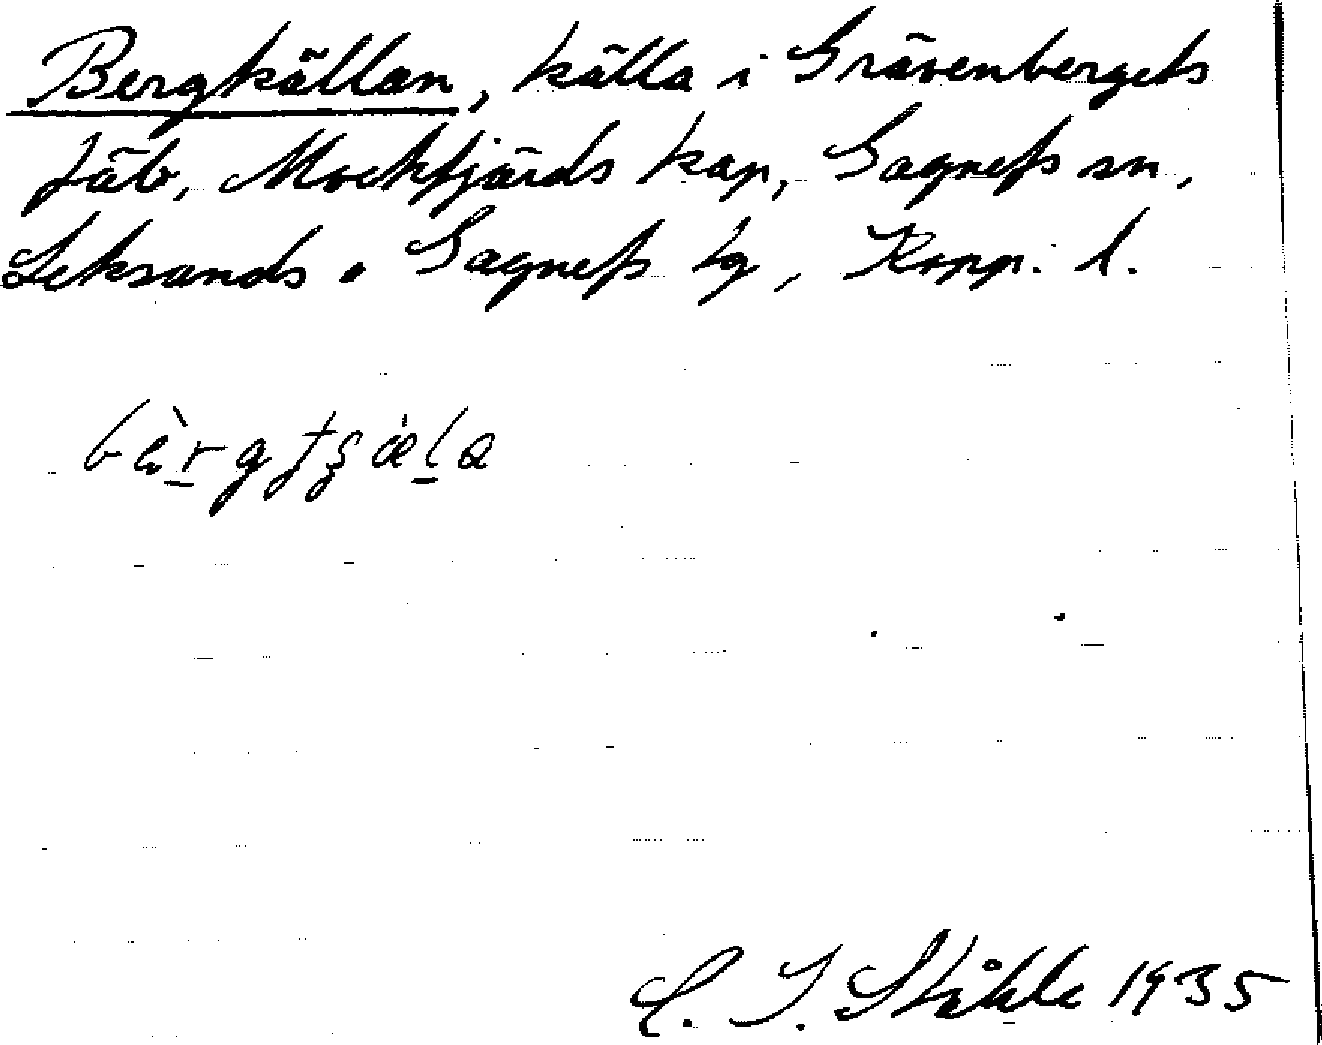 Bergkällan, källa i Grävenbergets
fäb, Mockfjärds kap, Gagnefs sn,
Leksands o Gagnefs tg, Kopp. l.
C. I. Ståhle 1935